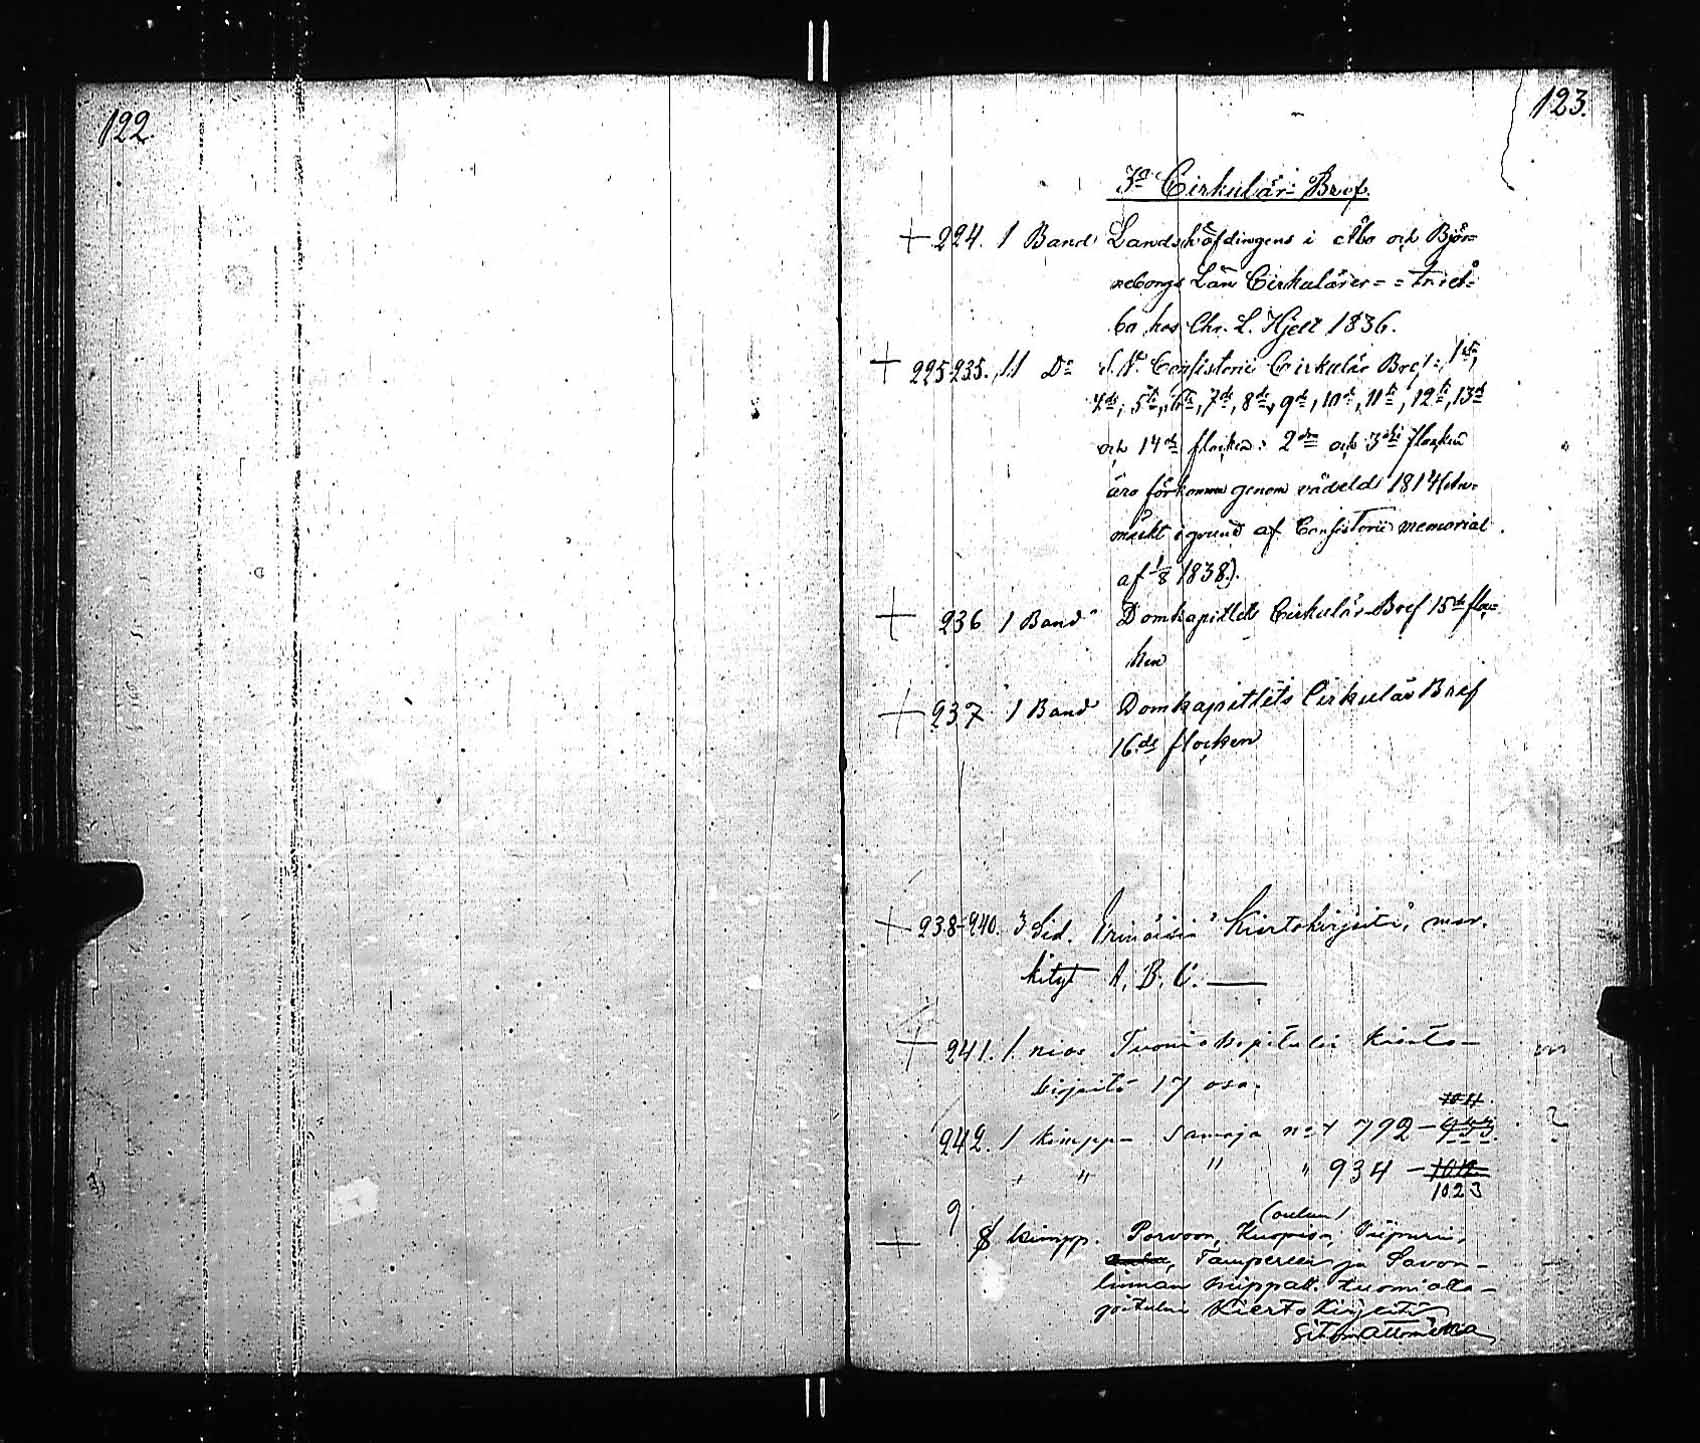 122.
123.
3o Cirkulär-Bref.
+ 224. 1 Band Landshöfdingens i Åbo och Björ-
neborgs Län Cirkulärer = = tryck-
ta hos Chr. L. Hjelt 1836.
+ 225-235. 11 Do Consistorii Cirkulär Bref: 1sta,
4de, 5te, 6te, 7de, 8de, 9de, 10de, 11te, 12te, 13de
och 14de flocken: 2dra och 3dje flocken
äro förkomna genom vådeld 1814 (An-
märkt i grund af Consistorii memorial
af 1/8 1838.).
+ 236 1 Band Domkapitlets Cirkulär-Bref 15de floc-
ken
+ 237 1 Band Domkapitlets Cirkulär Bref
16de flocken
+ 238-240. 3 Sid. Erinäisiä Kiertokirjeitä, mer-
kityt A. B. C. —
+ 241. 1. nios Tuomiokapitulin kierto-
kirjeitä 17 osa.
1011.
242. 1 kimppu samoja n:ot 792 - 933. ?
" " " " 934 - 1012
1023
9 (Oulun)
+ 8 kimpp. Porvoon, Kuopion, Viipurin,
Oulun, Tampereen ja Savon-
linnan hiippak. tuomioka-
pitulin Kiertokirjeitä
Sitomattomina